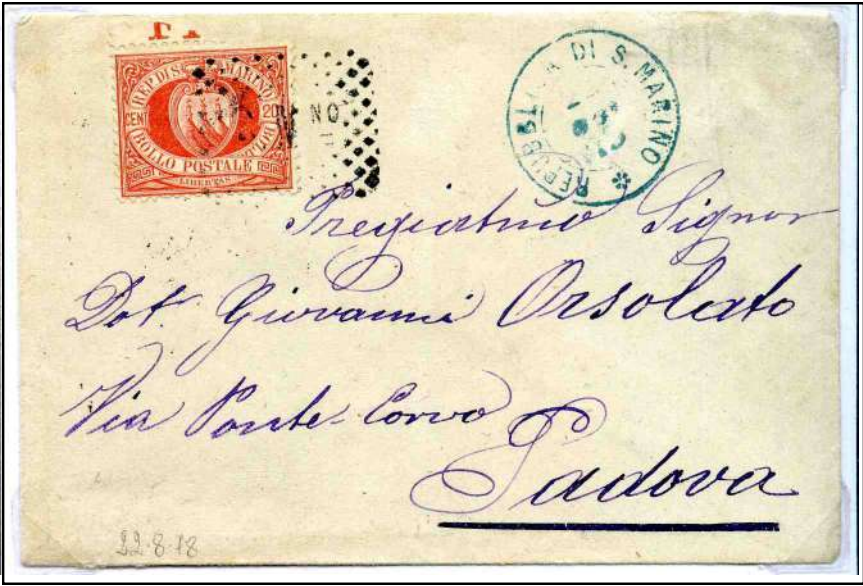 REP. DI S. MARINO
CENT 20
BOLLO POSTALE
LIBERTAS
NO
REPUBBLICA DI S. MARINO *
Pregiatmo Signor
Dot. Giovanni Orsolato
Via Ponte-Corvo
Padova
22.8.18